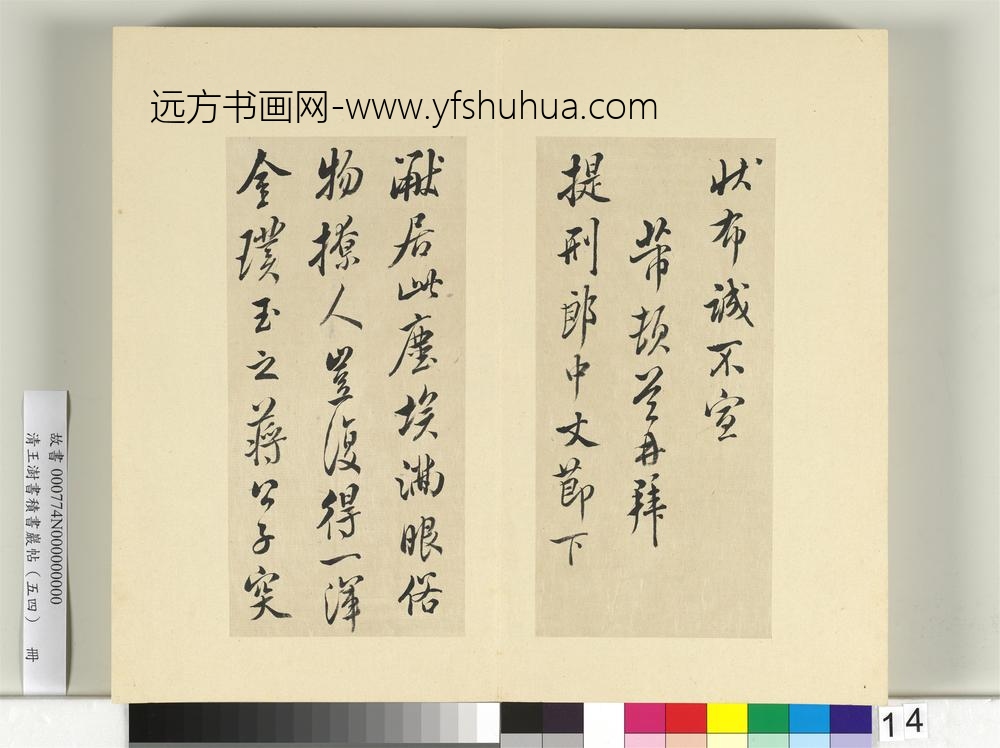 远方书画网-www.yfshuhua.com
状布誠不宣
芾頓首再拜
提刑郎中丈節下
黻居此塵埃滿眼俗
物撩人豈復得一渾
金璞玉之蔣公子突
故書 000774N000000000
清王澍書積書巖帖（五四） 冊
14